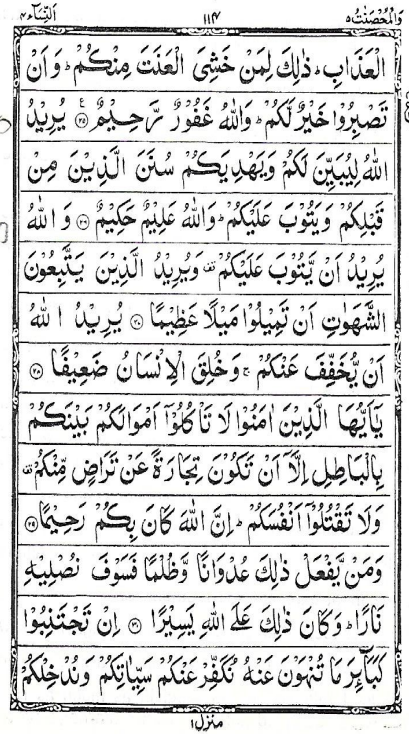 وَالْمُحْصَنٰتُ ۵ ۱۱۴ اَلنِّسَآء ۴
الْعَذَابِ ؕ ذٰلِكَ لِمَنْ خَشِیَ الْعَنَتَ مِنْكُمْ ؕ وَ اَنْ
تَصْبِرُوْا خَیْرٌ لَّكُمْ ؕ وَاللّٰهُ غَفُوْرٌ رَّحِیْمٌ ﴿۲۵﴾ یُرِیْدُ
اللّٰهُ لِیُبَیِّنَ لَكُمْ وَیَهْدِیَكُمْ سُنَنَ الَّذِیْنَ مِنْ
قَبْلِكُمْ وَیَتُوْبَ عَلَیْكُمْ ؕ وَاللّٰهُ عَلِیْمٌ حَكِیْمٌ ﴿۲۶﴾ وَ اللّٰهُ
یُرِیْدُ اَنْ یَّتُوْبَ عَلَیْكُمْ ۫ وَیُرِیْدُ الَّذِیْنَ یَتَّبِعُوْنَ
الشَّهَوٰتِ اَنْ تَمِیْلُوْا مَیْلًا عَظِیْمًا ﴿۲۷﴾ یُرِیْدُ اللّٰهُ
اَنْ یُّخَفِّفَ عَنْكُمْ ۚ وَخُلِقَ الْاِنْسَانُ ضَعِیْفًا ﴿۲۸﴾
یٰۤاَیُّهَا الَّذِیْنَ اٰمَنُوْا لَا تَاْكُلُوْۤا اَمْوَالَكُمْ بَیْنَكُمْ
بِالْبَاطِلِ اِلَّاۤ اَنْ تَكُوْنَ تِجَارَةً عَنْ تَرَاضٍ مِّنْكُمْ ۫
وَلَا تَقْتُلُوْۤا اَنْفُسَكُمْ ؕ اِنَّ اللّٰهَ كَانَ بِكُمْ رَحِیْمًا ﴿۲۹﴾
وَمَنْ یَّفْعَلْ ذٰلِكَ عُدْوَانًا وَّظُلْمًا فَسَوْفَ نُصْلِیْهِ
نَارًا ؕ وَكَانَ ذٰلِكَ عَلَی اللّٰهِ یَسِیْرًا ﴿۳۰﴾ اِنْ تَجْتَنِبُوْا
كَبَآىِٕرَ مَا تُنْهَوْنَ عَنْهُ نُكَفِّرْ عَنْكُمْ سَیِّاٰتِكُمْ وَنُدْخِلْكُمْ
منزل ۱